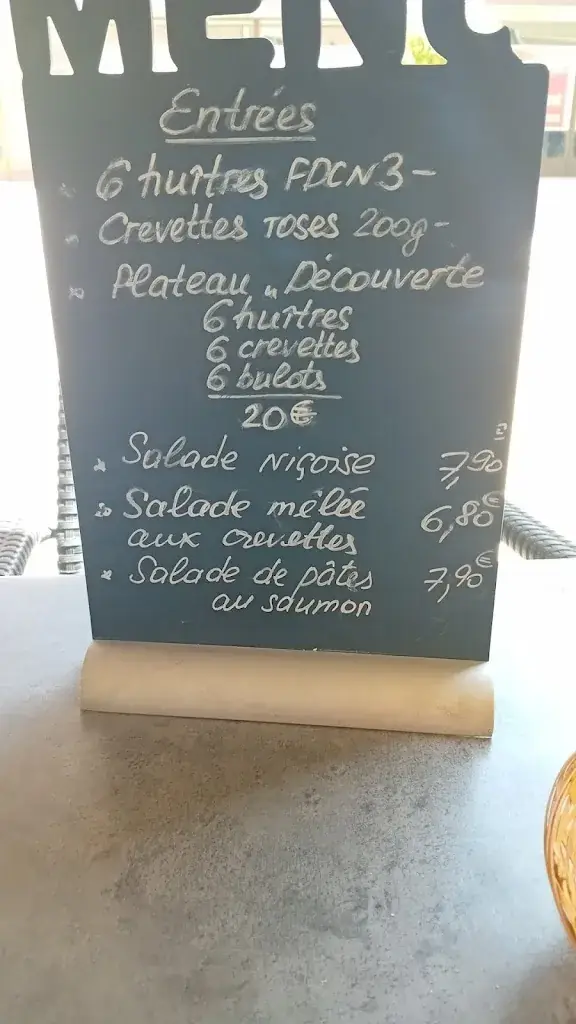 MENU
Entrées
6 huîtres FDCN3-
Crevettes roses 200g-
Plateau "Découverte
6 huîtres
6 crevettes
6 bulots
20€
Salade niçoise 7,90€
Salade mêlée 6,80€
aux crevettes
Salade de pâtes 7,90€
au saumon